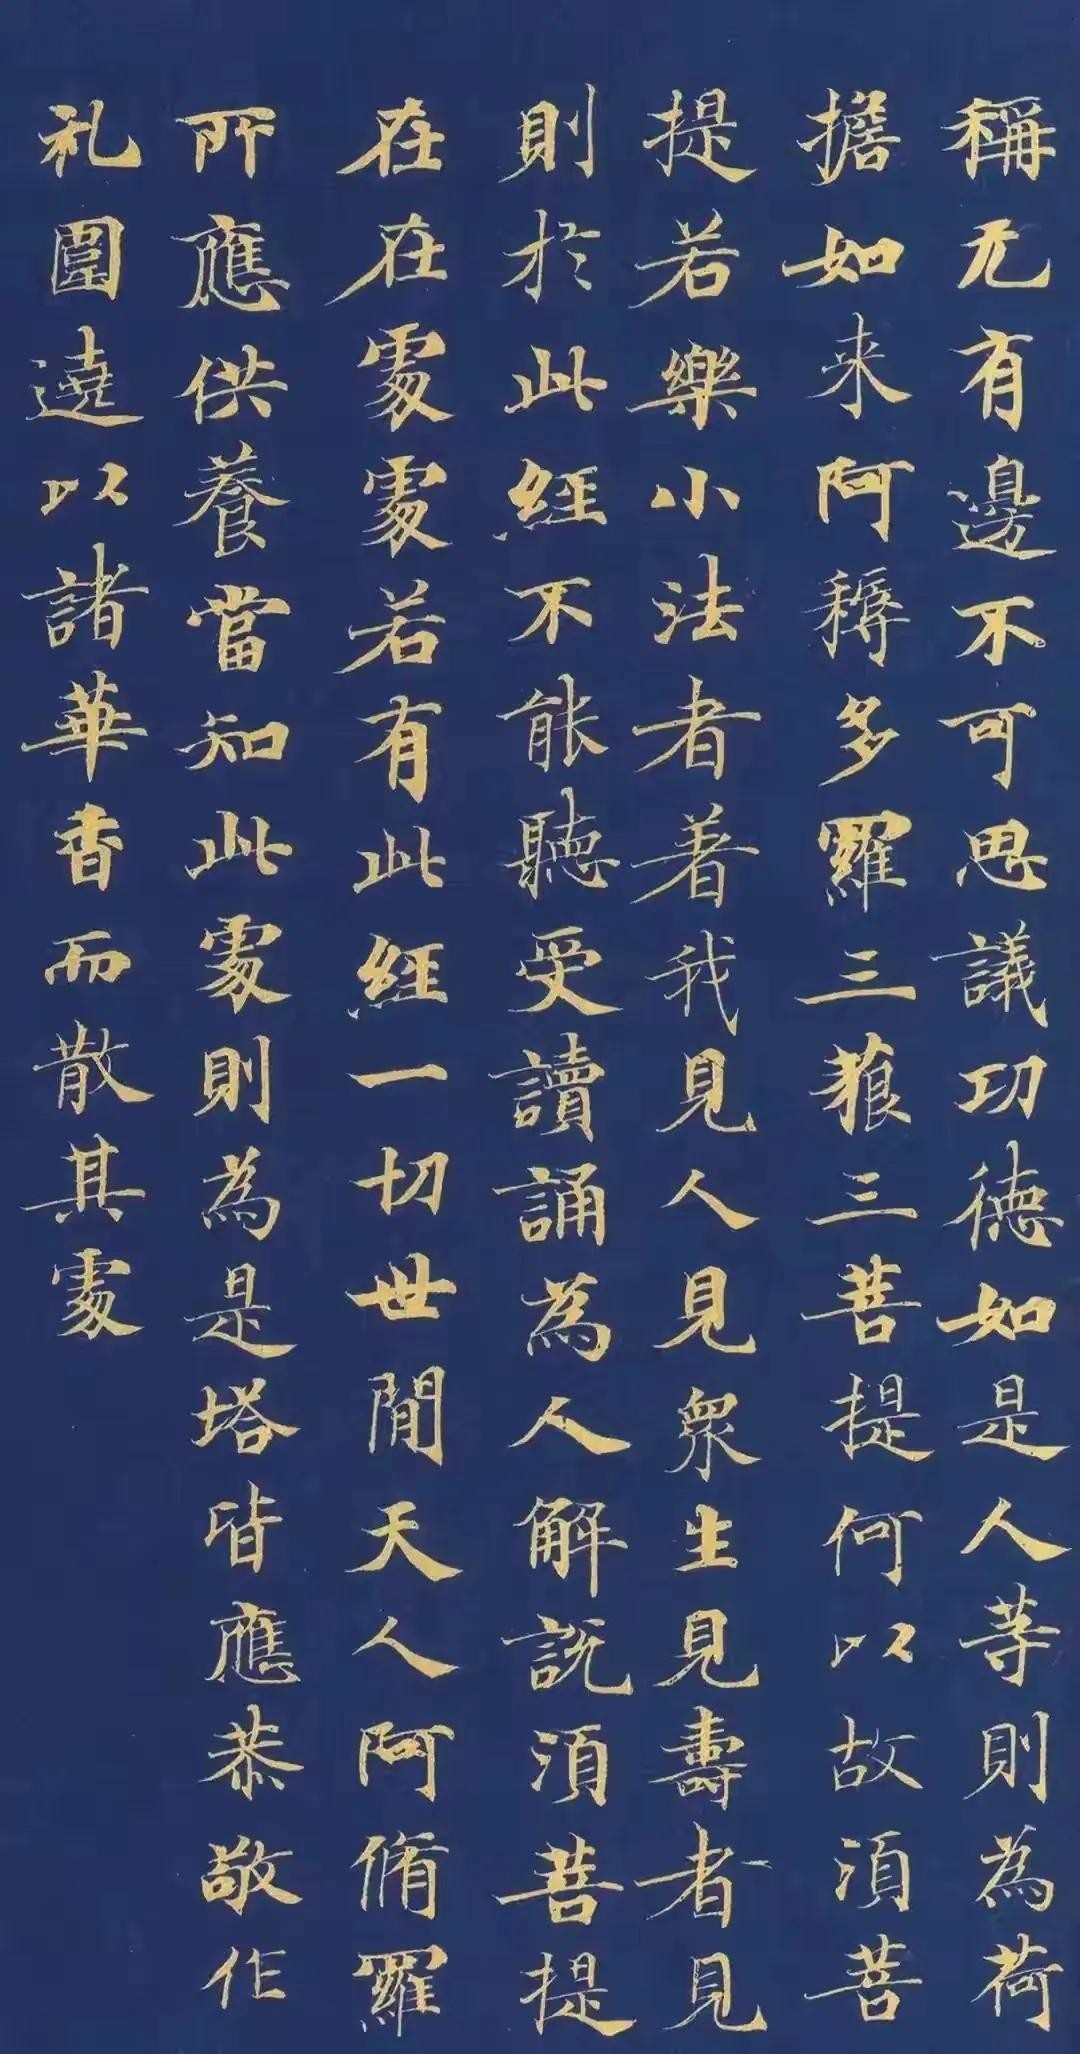 稱无有邊不可思議功徳如是人等則為荷
擔如来阿稱多羅三狼三菩提何以故湏菩
提若樂小法者著我見人見衆生見壽者見
則於此經不能聽受讀誦為人解説湏菩提
在在處處若有此經一切世閒天人阿脩羅
所應供養當知此處則為是塔皆應恭敬作
礼圍遶以諸華香而散其處